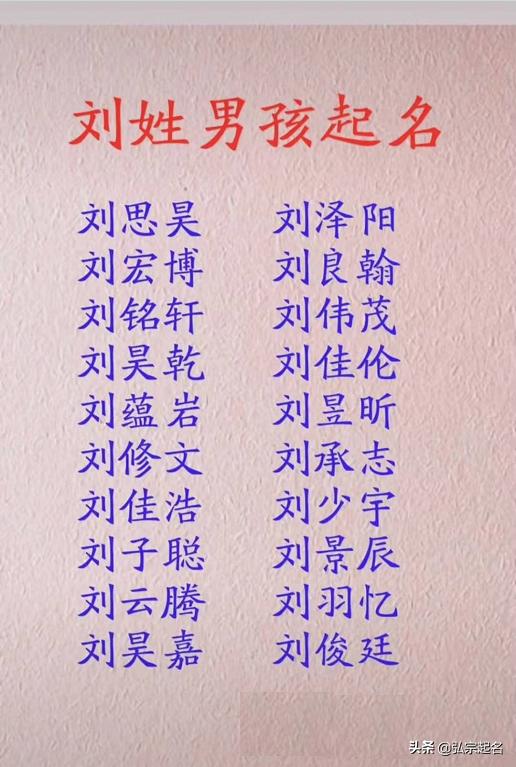 刘姓男孩起名
刘思昊 刘泽阳
刘宏博 刘良翰
刘铭轩 刘伟茂
刘昊乾 刘佳伦
刘蕴岩 刘昱昕
刘修文 刘承志
刘佳浩 刘少宇
刘子聪 刘景辰
刘云腾 刘羽忆
刘昊嘉 刘俊廷
头条 @弘宗起名